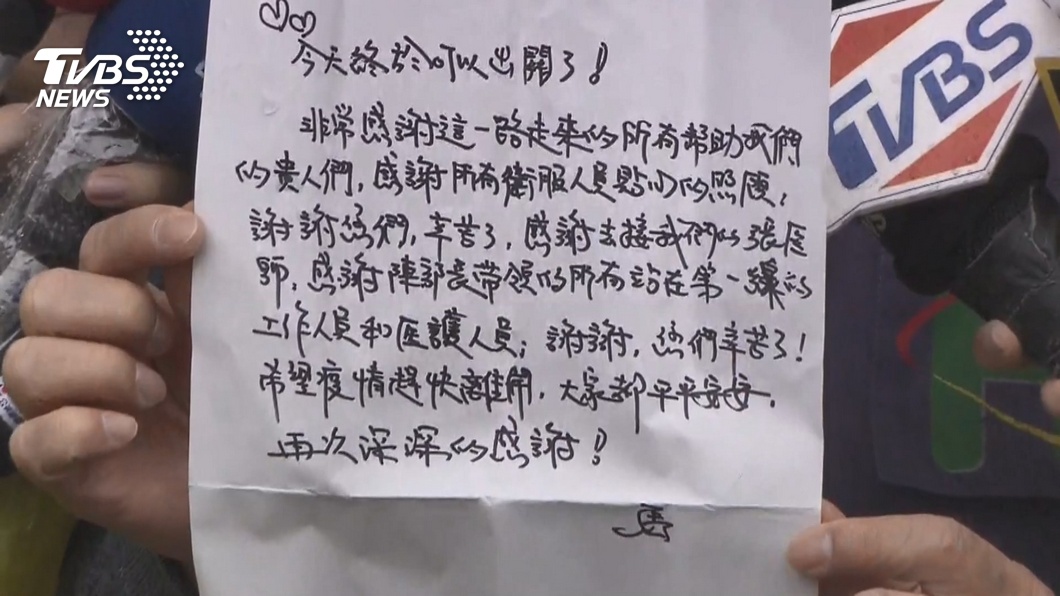 TVBS
NEWS
TVBS
今天終於可以出關了!
非常感謝這一路走來的所有幫助我們
的貴人們,感謝所有衛服人員貼心的照顧,
謝謝您們,辛苦了,感謝去接我們的張医
師,感謝陳部長帶領的所有站在第一線的
工作人員和医護人員,謝謝,您們辛苦了!
希望疫情趕快離開,大家都平平安安.
再次深深的感謝!